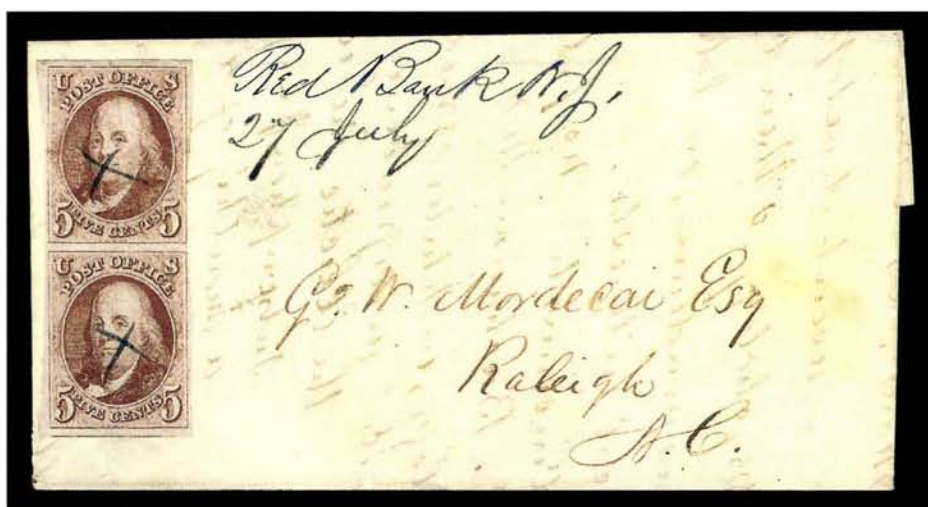 U S
POST OFFICE
5 FIVE CENTS 5
U S
POST OFFICE
5 FIVE CENTS 5
Red Bank N.J.
27 July
Go. W. Mordecai Esq
Raleigh
N.C.